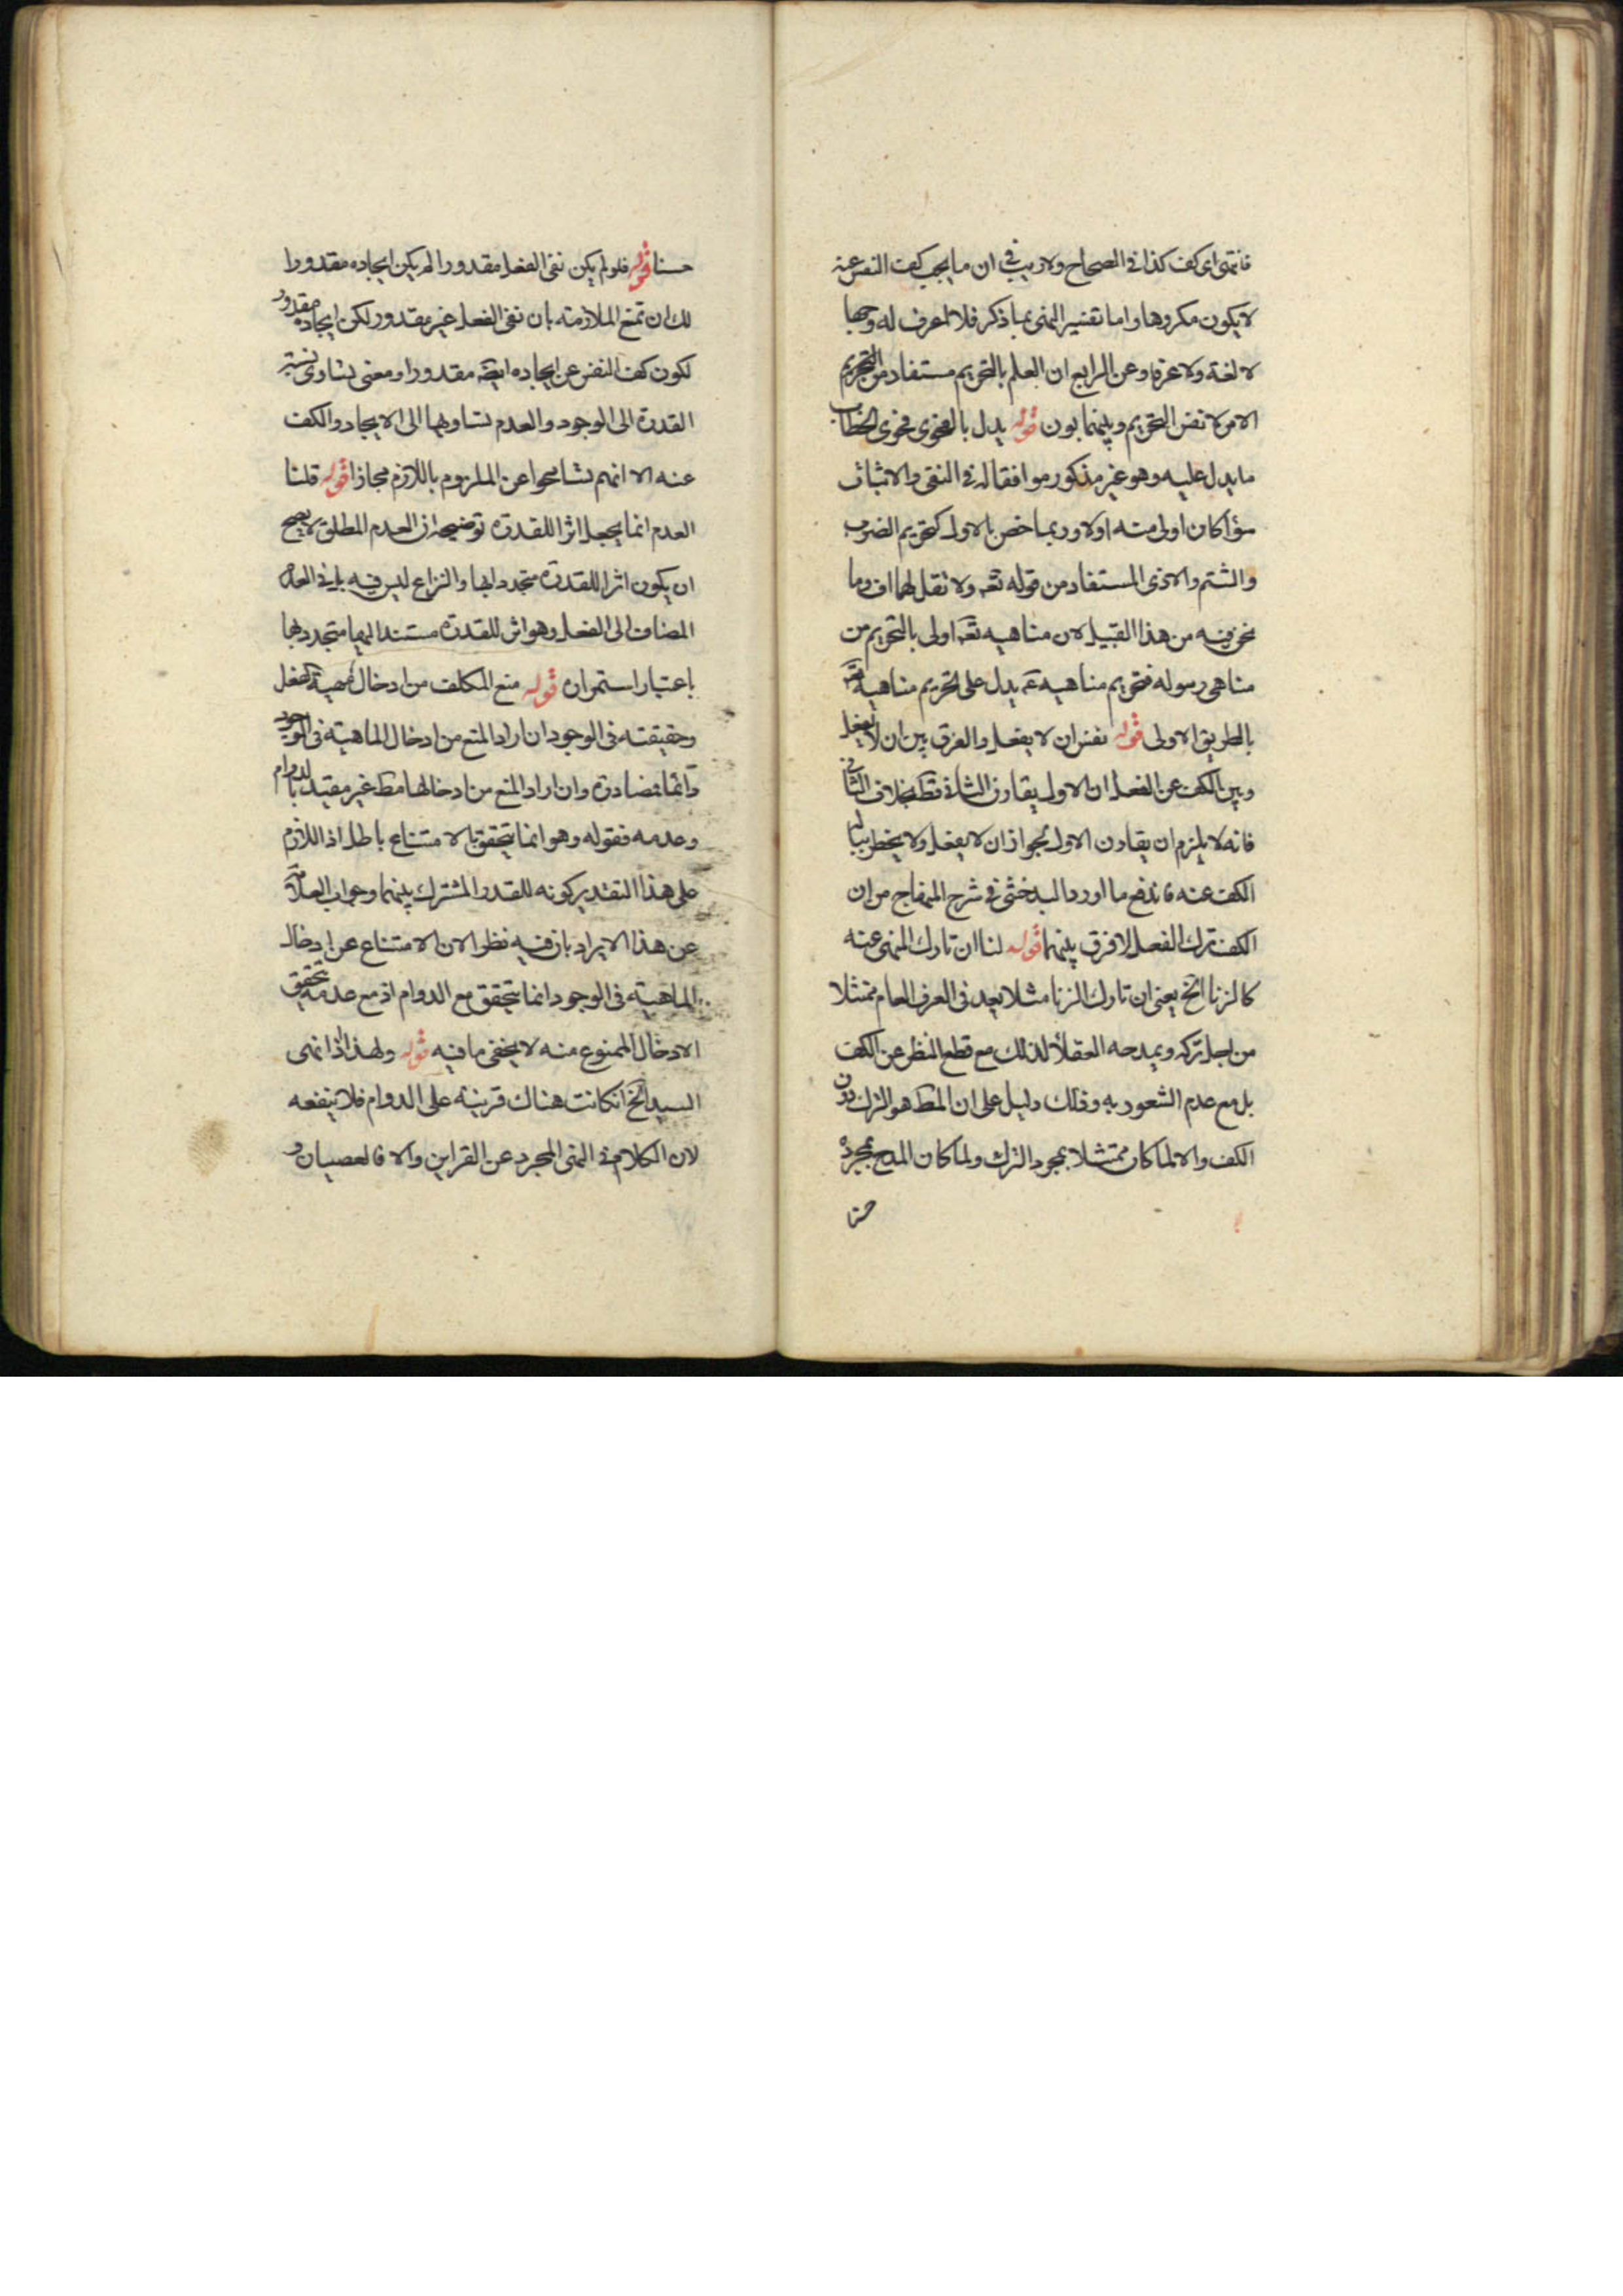 فانتهى اى كف كذا فى الصحاح ولا ريب فى ان ما يجب كف النفس عنه
لا يكون مكروها واما تفسير النهى بما ذكر فلا اعرف له وجها
لا لغة ولا عرفا وعن الرابع ان العلم بالتحريم مستفاد من التحريم
الامر لا نفس التحريم وبينهما بون قوله يدل بالفحوى فحوى الخطاب
ما يدل عليه وهو غير مذكور موافقا له فى النفى والاثبات
سؤا كان اولى منه اولا وربما خص بالاول كتحريم الضرب
والشتم والاذى المستفاد من قوله تعه ولا تقل لهما اف وما
نحن فيه من هذا القبيل لان مناهيه تعه اولى بالتحريم من
مناهى رسوله فتحريم مناهيه عم يدل على تحريم مناهيه تعه
بالطريق الاولى قوله نفس ان لا يفعل والفرق بين ان لا يفعل
وبين الكف عن الفعل ان الاول يقارن الثانى قط بخلاف الثانى
فانه لا يلزم ان يقارن الاول لجواز ان لا يفعل ولا يخطر بباله
الكف عنه فاندفع ما اورده البدخشى فى شرح المنهاج من ان
الكف ترك الفعل لا فرق بينهما قوله لنا ان تارك المنهى عنه
كالزنا الخ يعنى ان تارك الزنا مثلا يعد فى العرف العام ممتثلا
من اجل تركه ويمدحه العقلا لذلك مع قطع النظر عن الكف
بل مع عدم الشعور به وذلك دليل على ان المط هو الترك دون
الكف والا لما كان ممتثلا بمجرد الترك ولما كان المدح بمجرده
حسنا
حسنا قوله فلو لم يكن نفى الفعل مقدورا لم يكن ايجاده مقدورا
لك ان تمنع الملازمة بان نفى الفعل غير مقدور لكن ايجاده مقدور
لكون كف النفس عن ايجاده ايضه مقدورا ومعنى تساوى نسبة
القدرة الى الوجود والعدم تساويها الى الايجاد والكف
عنه الا انهم تسامحوا عن الملزوم باللازم مجازا قوله قلنا
العدم انما يجعل اثرا للقدرة توضيحه ان العدم المطلق لا يصح
ان يكون اثرا للقدرة متجددا بها والنزاع ليس فيه بل فى العدم
المضاف الى الفعل وهو اثر للقدرة مستند اليها متجدد بها
باعتبار استمراره قوله منع المكلف من ادخال مهية الفعل
وحقيقته فى الوجود ان اراد المنع من ادخال الماهية فى الوجود
دائما فمصادرة وان اراد المنع من ادخالها مط غير مقيد بالدوام
وعدمه فقوله وهو انما يتحقق بالامتناع باطل اذ اللازم
على هذا التقدير كونه للقدر المشترك بينهما وجواب العلامة
عن هذا الايراد بان فيه نظر الان الامتناع عن ادخال
الماهية فى الوجود انما يتحقق مع الدوام اذ مع عدمه يتحقق
الادخال الممنوع منه لا يخفى ما فيه قوله ولهذا اذا نهى
السيد الخ ان كانت هناك قرينة على الدوام فلا ينفعه
لان الكلام فى النهى المجرد عن القراين والا فالعصيان و